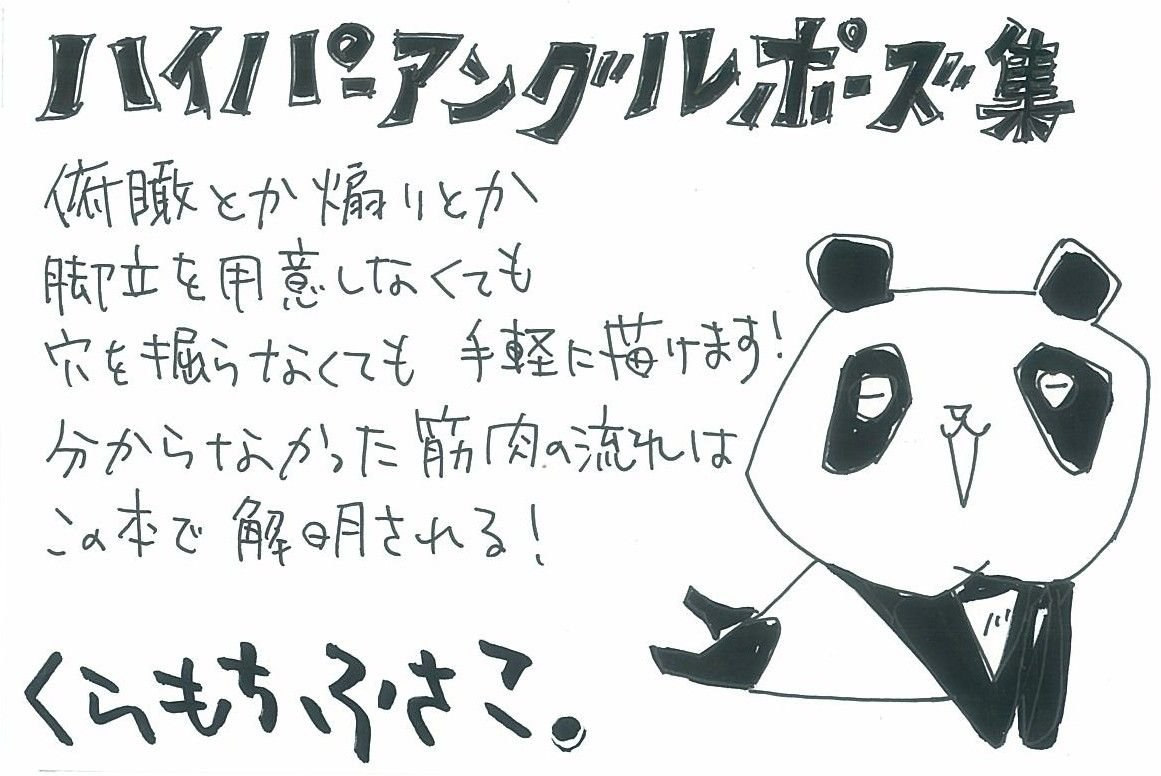 ハイパーアングルポーズ集
俯瞰とか煽りとか
脚立を用意しなくても
穴を掘らなくても 手軽に描けます!
分からなかった筋肉の流れは
この本で解明される!
くらもちふさこ。